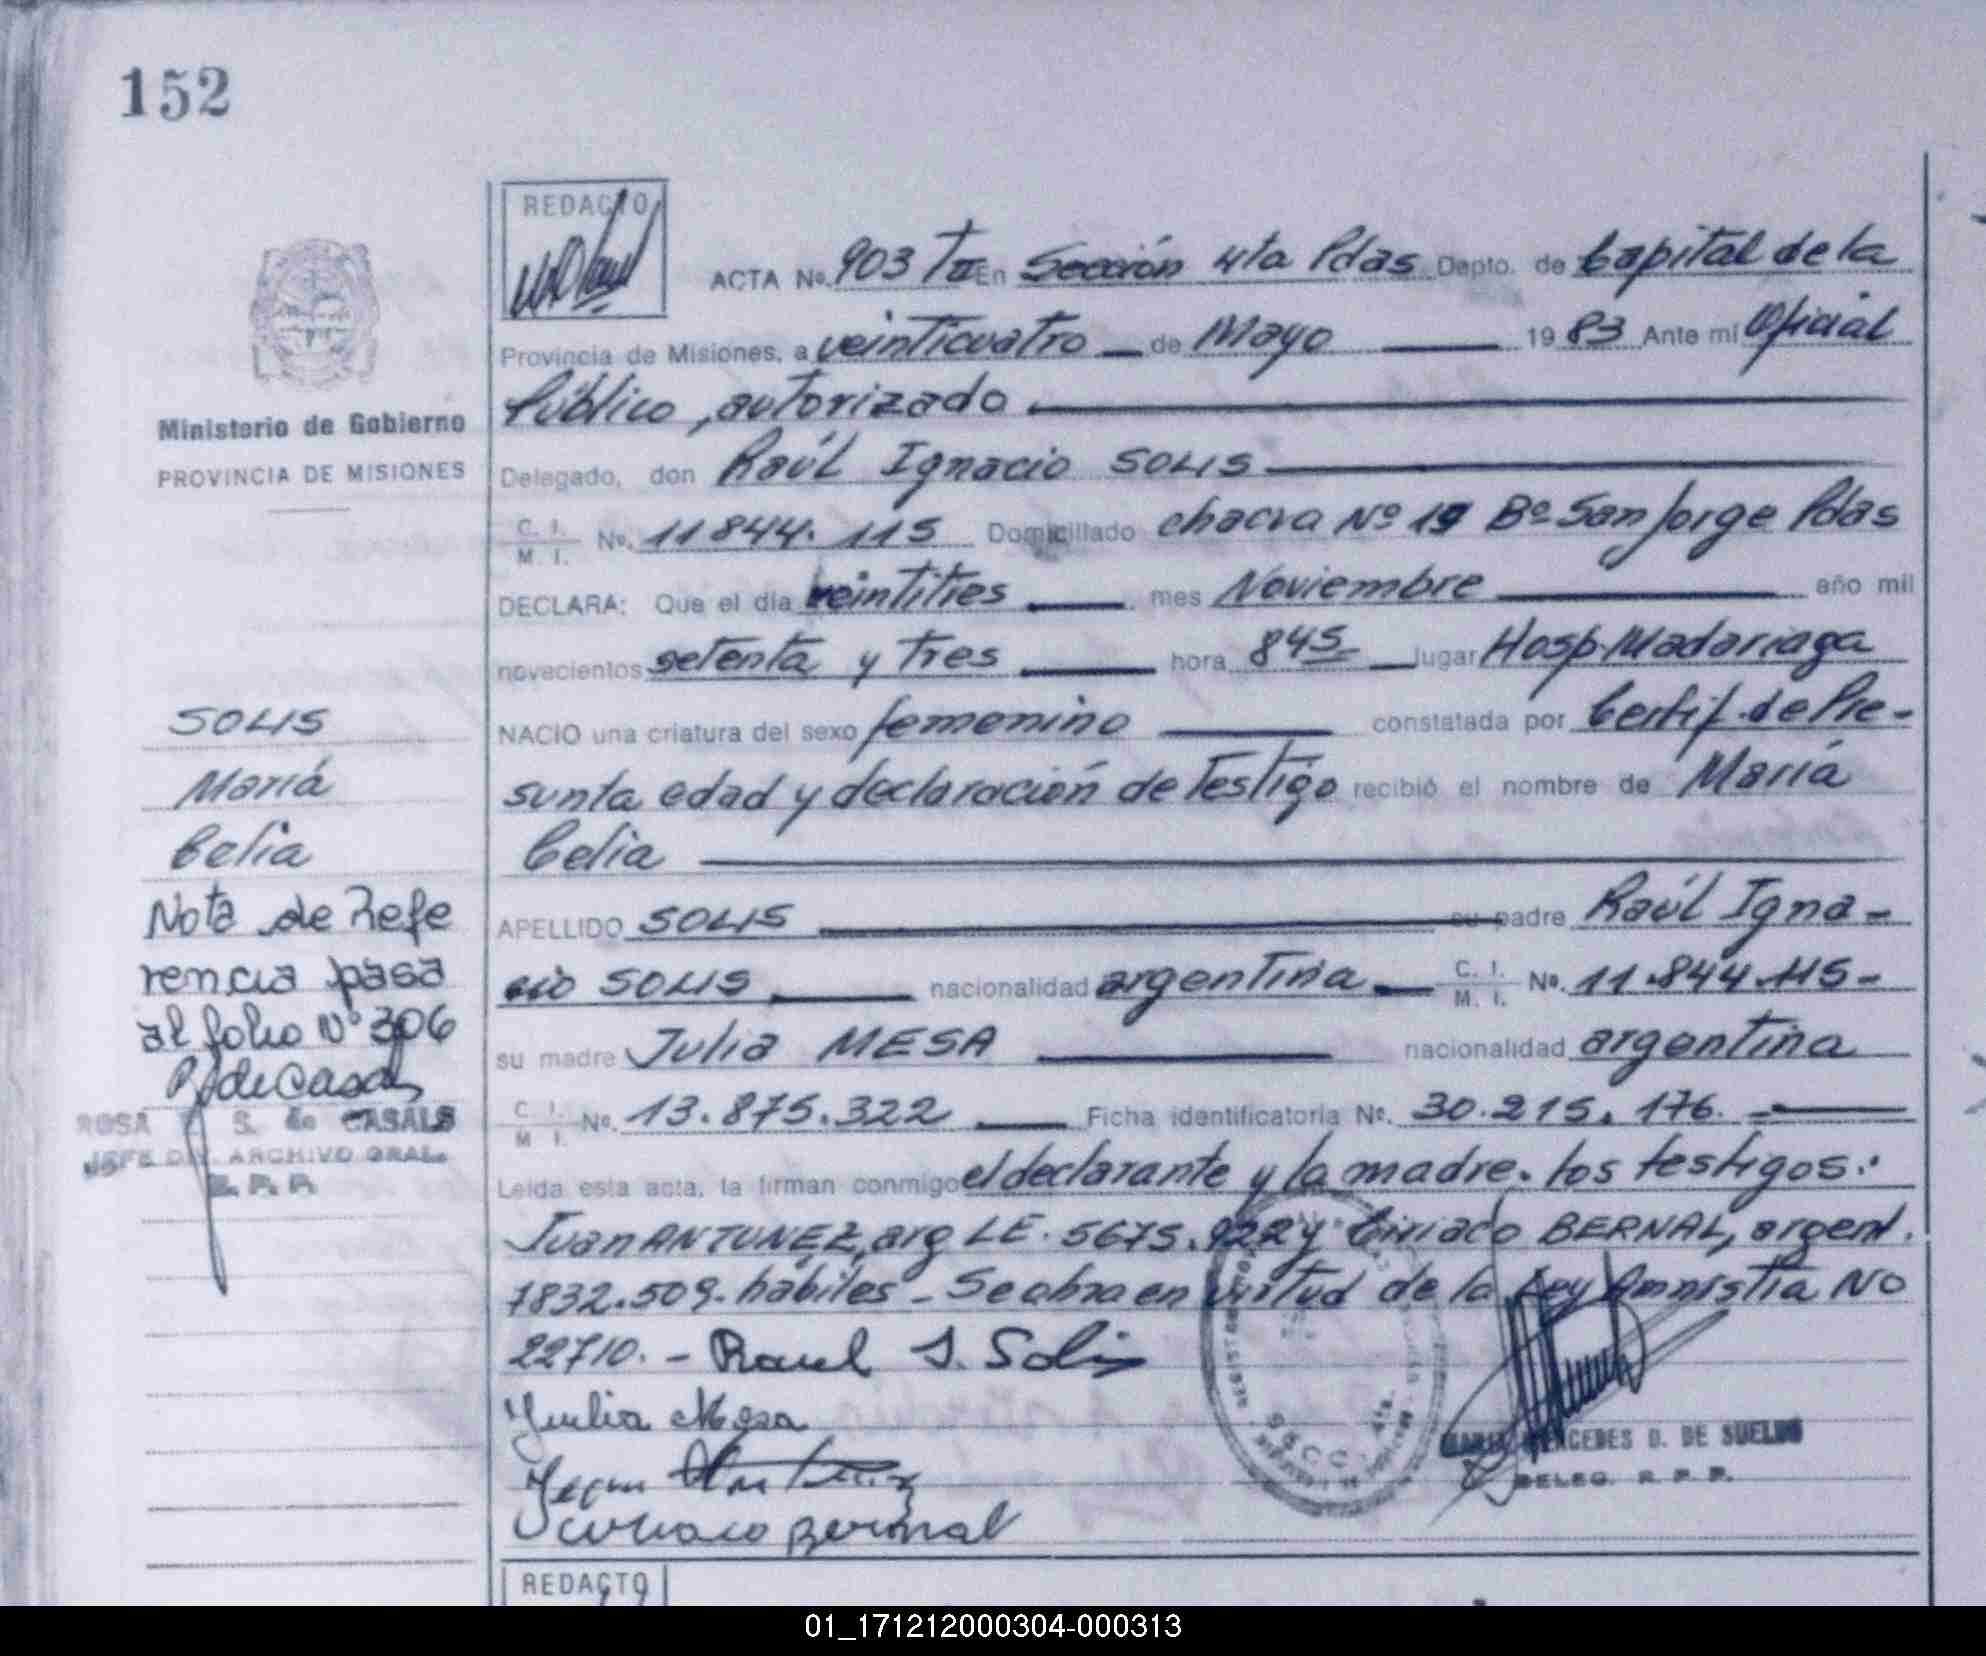 152
REDACTO
ACTA No. 903 TII En Sección 4ta Pdas Depto. de Capital de la
Provincia de Misiones, a veinticuatro de Mayo 1983 Ante mí Oficial
Público, autorizado
Ministerio de Gobierno
PROVINCIA DE MISIONES
Delegado, don Raúl Ignacio SOLIS
C. I. M. I. No. 11844.115 Domicillado chacra Nº 19 Bº San Jorge Pdas
DECLARA: Que el día veintitres mes Noviembre año mil
novecientos setenta y tres hora 845 lugar Hosp. Madariaga
NACIO una criatura del sexo femenino constatada por Certif. de Pre-
sunta edad y declaración de Testigo recibió el nombre de María
Celia
APELLIDO SOLIS su padre Raúl Igna-
cio SOLIS nacionalidad argentina C. I. M. I. No. 11.844.115-
su madre Julia MESA nacionalidad argentina
C. I. M. I. No. 13.875.322 Ficha identificatoria No. 30.215.176.
Leída esta acta, la firman conmigo el declarante y la madre. los testigos:
Juan ANTUNEZ, arg LE. 5675.922 y Ciriaco BERNAL, argent.
7832.509. hábiles - Se obra en virtud de la Ley Amnistía NO
22710. - Raul I. Solis
Julia Mesa
Juan Antunez
Ciriaco Bernal
MARIA MERCEDES D. DE SUELDO
DELEG. R. P. P.
SOLIS
María
Celia
Nota de Refe
rencia pasa
al folio Nº 306
R de Casals
ROSA S. de CASALS
JEFE DIV. ARCHIVO GRAL.
R. P. P.
REDACTO
01_171212000304-000313